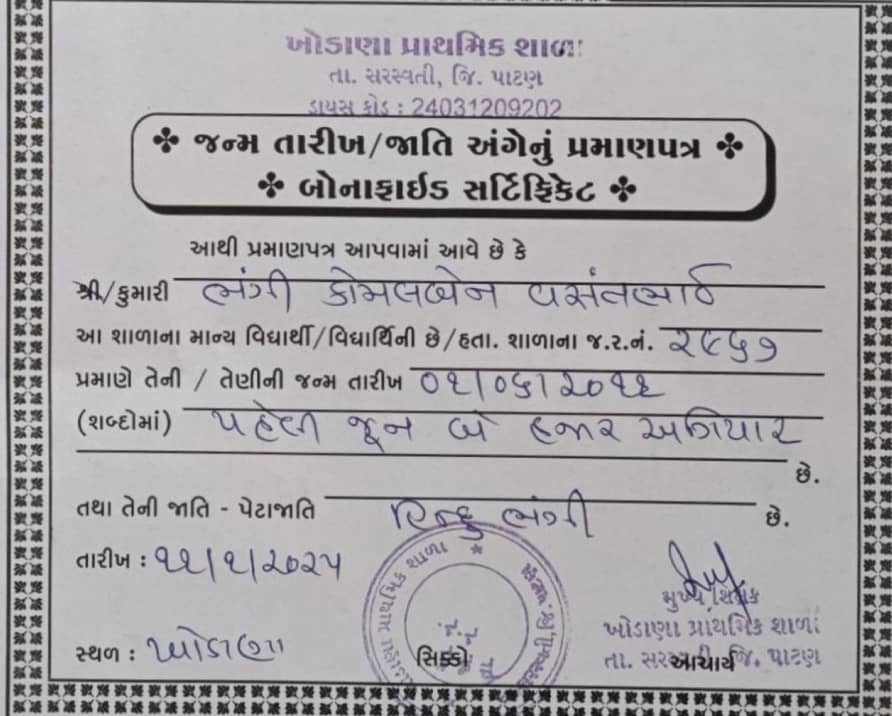 ખોડાણા પ્રાથમિક શાળા
તા. સરસ્વતી, જિ. પાટણ
ડાયસ કોડ : 24031209202
જન્મ તારીખ/જાતિ અંગેનું પ્રમાણપત્ર
બોનાફાઈડ સર્ટિફિકેટ
આથી પ્રમાણપત્ર આપવામાં આવે છે કે
શ્રી/કુમારી ભંગી કોમલબેન વસંતભાઈ
આ શાળાના માન્ય વિદ્યાર્થી/વિદ્યાર્થિની છે/હતા. શાળાના જ.ર.નં. ૨૯૬૭
પ્રમાણે તેની / તેણીની જન્મ તારીખ ૦૧/૦૬/૨૦૧૧
(શબ્દોમાં) પહેલી જૂન બે હજાર અગિયાર
છે.
તથા તેની જાતિ - પેટાજાતિ હિન્દુ ભંગી છે.
તારીખ : ૧૧/૧/૨૦૨૫
મુખ્ય શિક્ષક
ખોડાણા પ્રાથમિક શાળા
સ્થળ : ખોડાણા સિક્કો તા. સરસ્વતી જિ. પાટણ
આચાર્ય